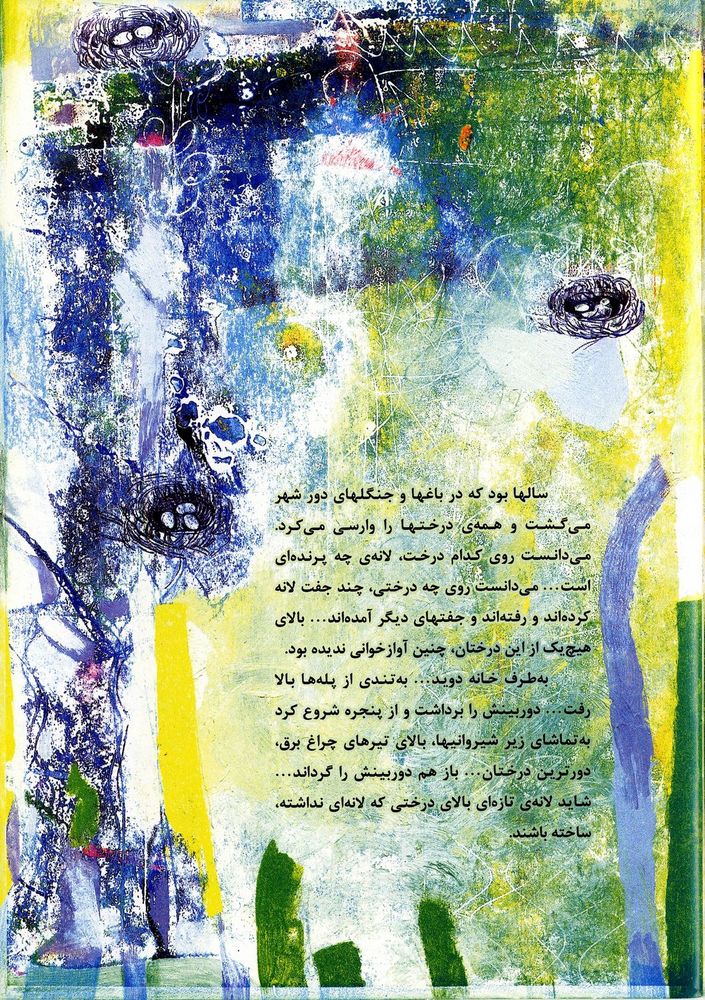 سالها بود که در باغها و جنگلهای دور شهر
می‌گشت و همه‌ی درختها را وارسی می‌کرد.
می‌دانست روی کدام درخت، لانه‌ی چه پرنده‌ای
است... می‌دانست روی چه درختی، چند جفت لانه
کرده‌اند و رفته‌اند و جفتهای دیگر آمده‌اند... بالای
هیچ‌یک از این درختان، چنین آوازخوانی ندیده بود.
به‌طرف خانه دوید... به‌تندی از پله‌ها بالا
رفت... دوربینش را برداشت و از پنجره شروع کرد
به‌تماشای زیر شیروانیها، بالای تیرهای چراغ برق،
دورترین درختان... باز هم دوربینش را گرداند...
شاید لانه‌ی تازه‌ای بالای درختی که لانه‌ای نداشته،
ساخته باشند.